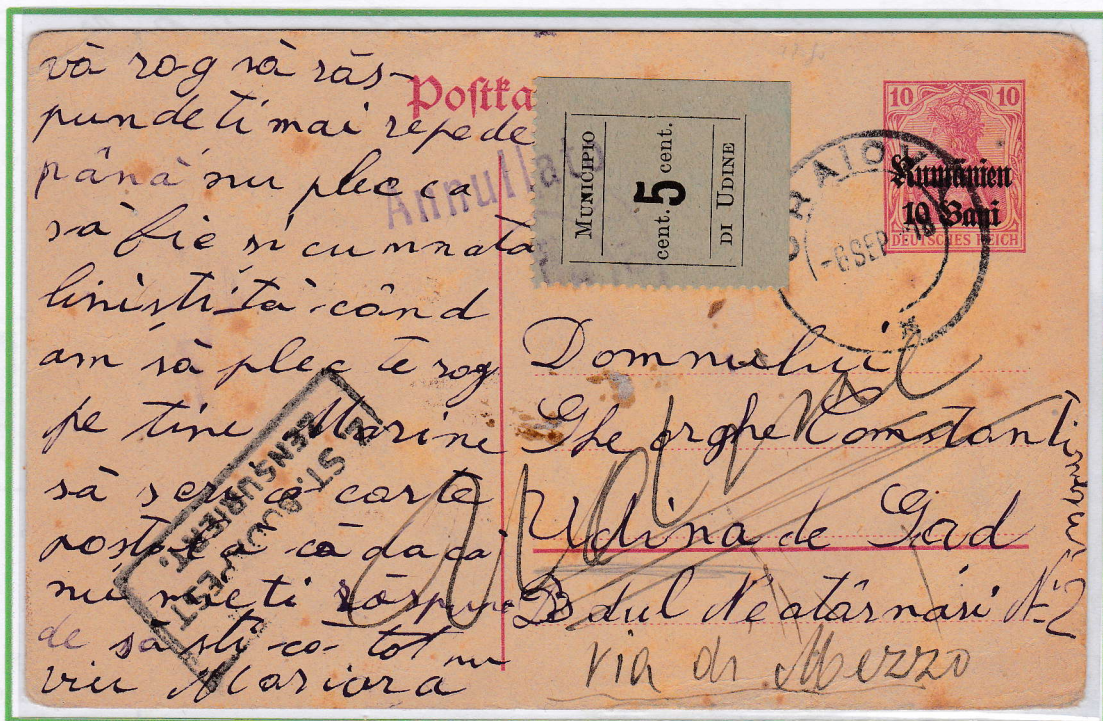 vă rog să răs-
pundeti mai repede
până nu plec ca
să fie si cumnata
linistită când
am să plec te rog
pe tine Marine
să scrii o carte
postală că dacă
nu
de să sti că tot nu
viu Mariora
Postka
Annullato
MUNICIPIO
cent. 5 cent.
DI UDINE
CRAIOVA
-6 SEP 18
10 10
Rumänien
10 Bani
DEUTSCHES REICH
Domnului
Gheorghe Constanti
Udina de Gad
Bdul Neatârnări N-2
via di Mezzo
ST. BUDAPEST
ZENSURIERT.